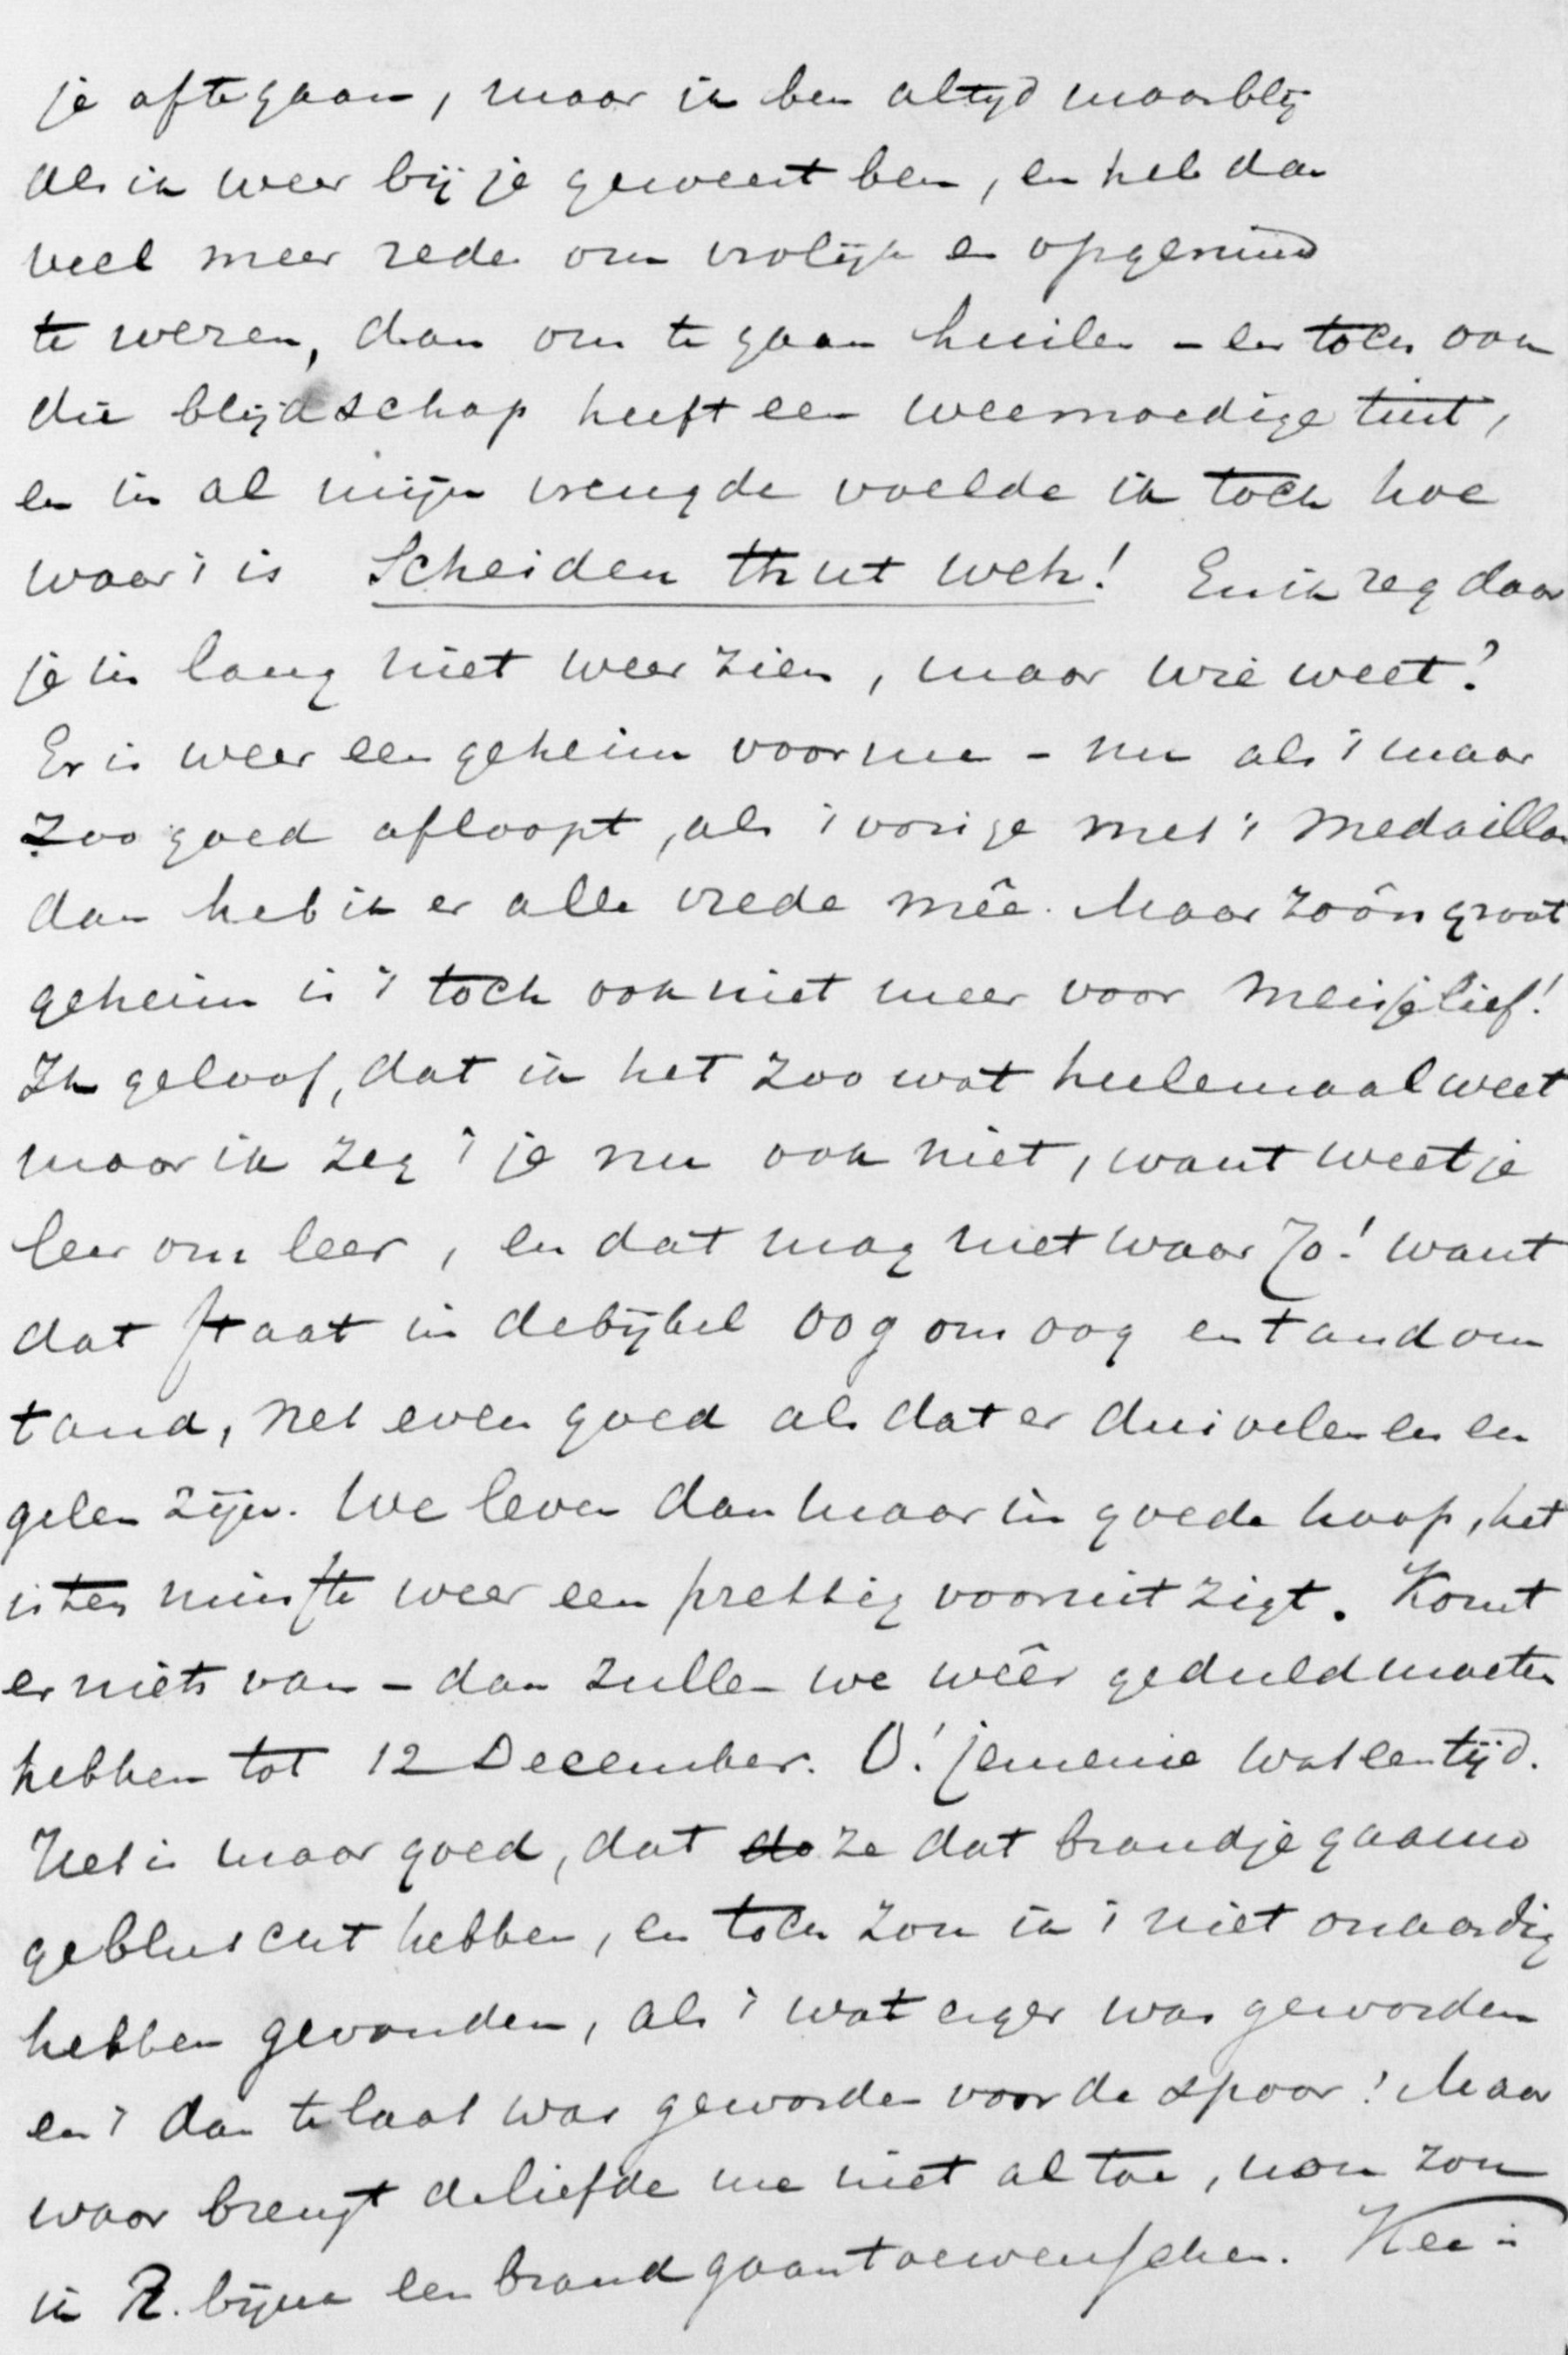 je af te gaan, maar ik ben altyd maar blij
als ik weer bij je geweest ben, en heb dan
veel meer rede om vrolijk en opgeruimd
te wezen, dan om te gaan huilen - en toch ook
die blijdschap heeft een weemoedige tint,
en in al mijn vreugde voelde ik toch hoe
waar 't is Scheiden thut weh! En ik zeg daar
je in lang niet weer zien, maar wie weet?
Er is weer een geheim voor me - nu als 't maar
zoo goed afloopt, als 't vorige met 't medaillon
dan heb ik er alle vrede mêe. Maar zoôn groot
geheim is 't toch ook niet meer voor meisjelief!
Ik geloof, dat ik het zoo wat heelemaal weet
maar ik zeg 't je nu ook niet, want weet je
leer om leer, en dat mag niet waar Jo! want
dat staat in de bijbel oog om oog en tand om
tand, net even goed als dat er duivelen en en
gelen zijn. We leven dan maar in goede hoop, het
is ten minste weer een prettig vooruitzigt. Komt
er niets van - dan zullen we wêer geduld moeten
hebben tot 12 December. O! jemenie wat een tijd.
Het is maar goed, dat do ze dat brandje gaauw
gebluscht hebben, en toch zou ik 't niet onaardig
hebben gevonden, als 't wat erger was geworden
en 't dan te laat was geworden voor de spoor! Maar
waar brengt de liefde me niet al toe, nou zou
ik R. bijna een brand gaan toewenschen.